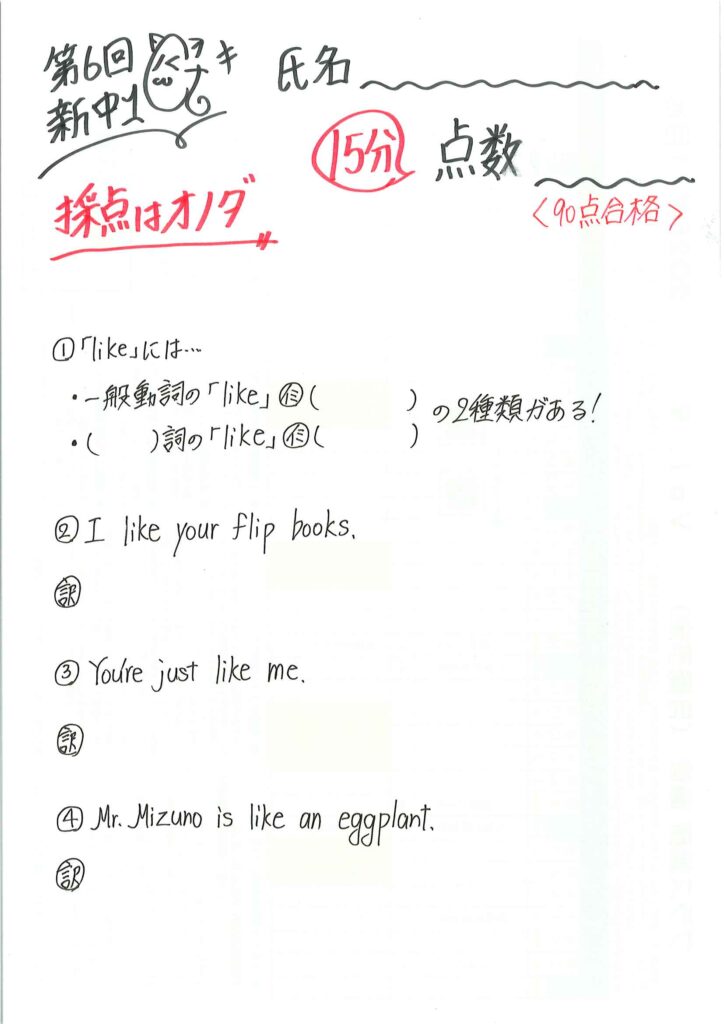 第6回
新中1
オオキ
氏名
15分
点数
採点はオノダ
<90点合格>
①「like」には…
・一般動詞の「like」㊓(        )
・(    )詞の「like」㊓(        )
の2種類がある!
② I like your flip books.
訳
③ You're just like me.
訳
④ Mr. Mizuno is like an eggplant.
訳